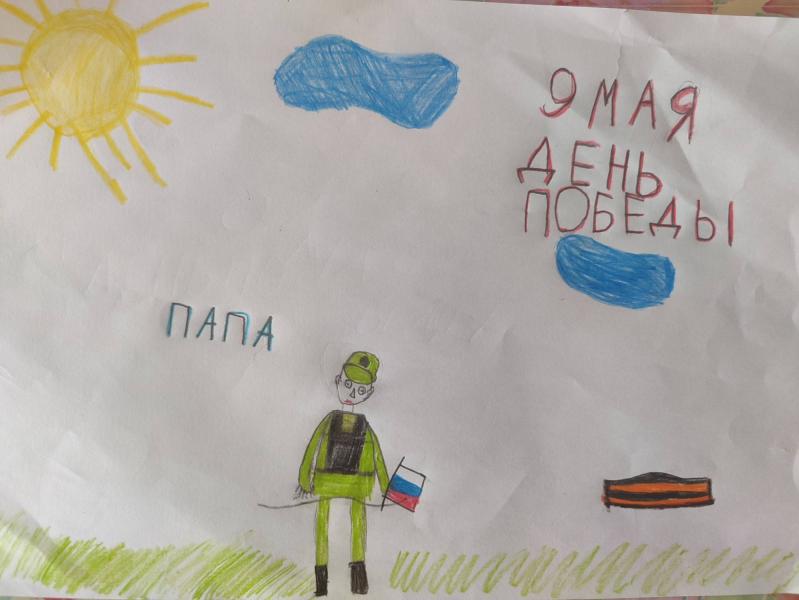 9 МАЯ
ДЕНЬ
ПОБЕДЫ
ПАПА